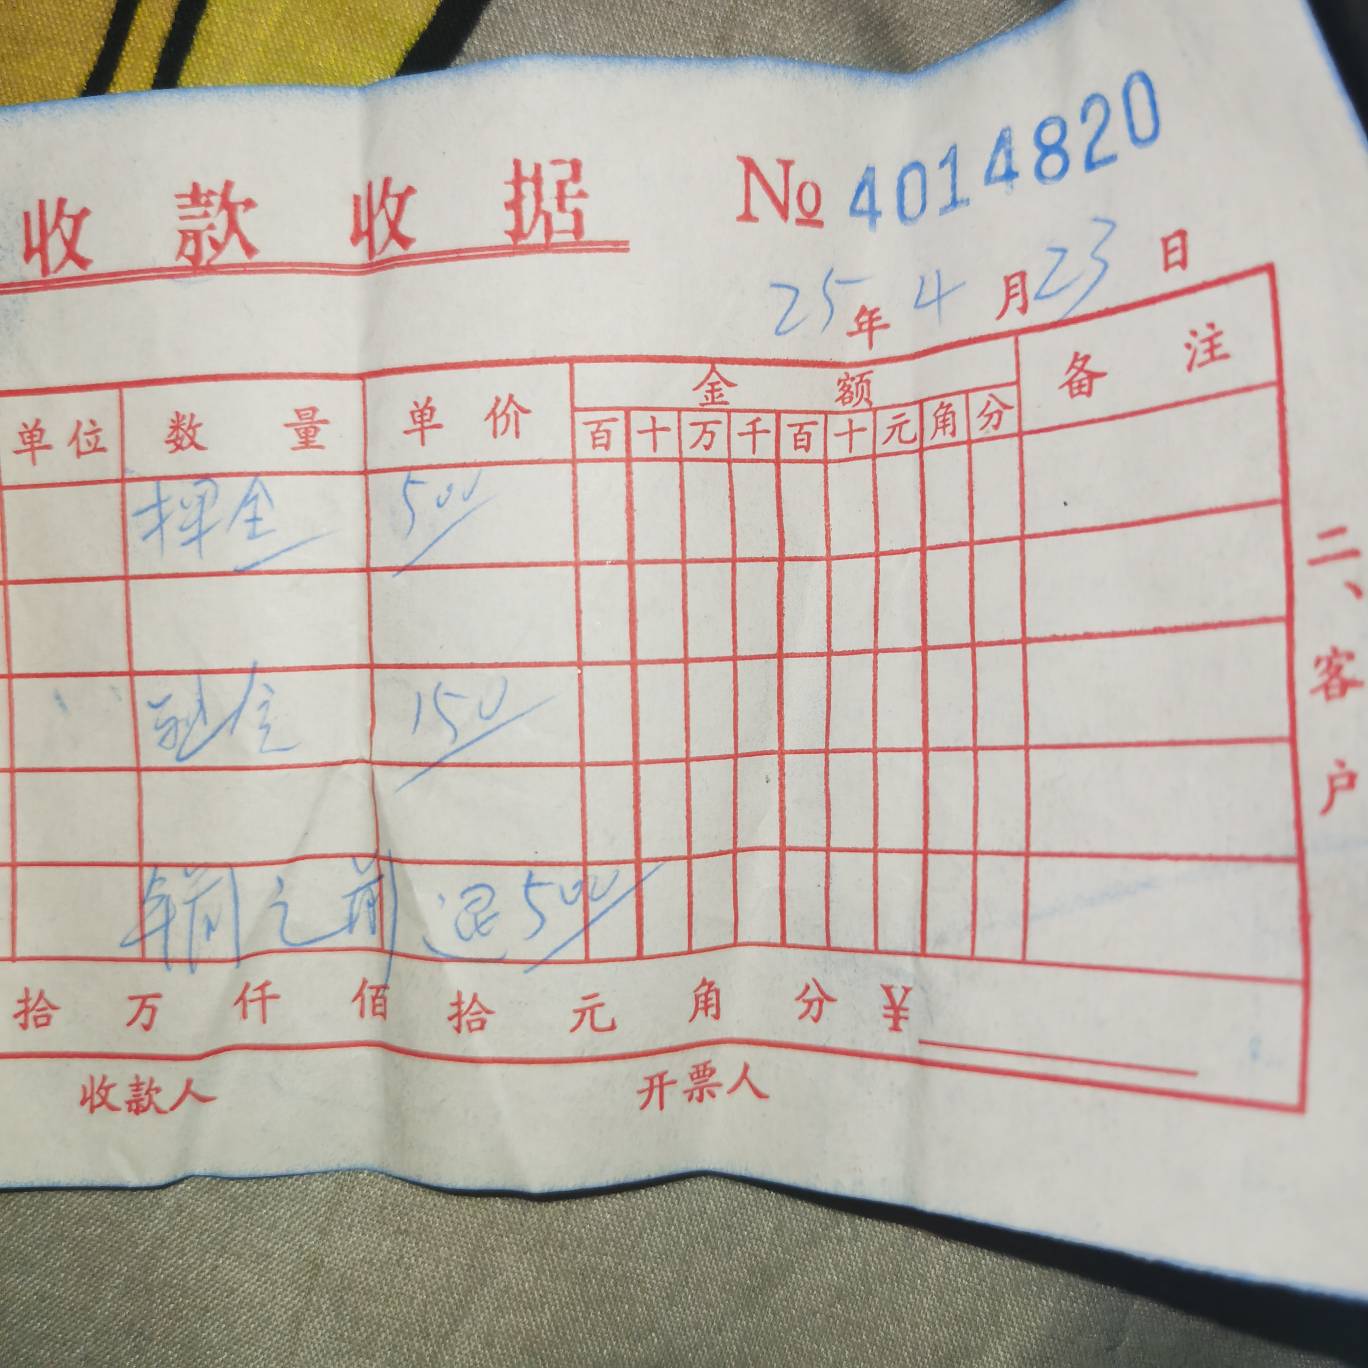 收款收据 № 4014820
25年4月23日
单位 数量 单价 金额 备注
百 十 万 千 百 十 元 角 分
押金 500
150
年前之前 退500
拾 万 仟 佰 拾 元 角 分 ¥
收款人 开票人
二、客户